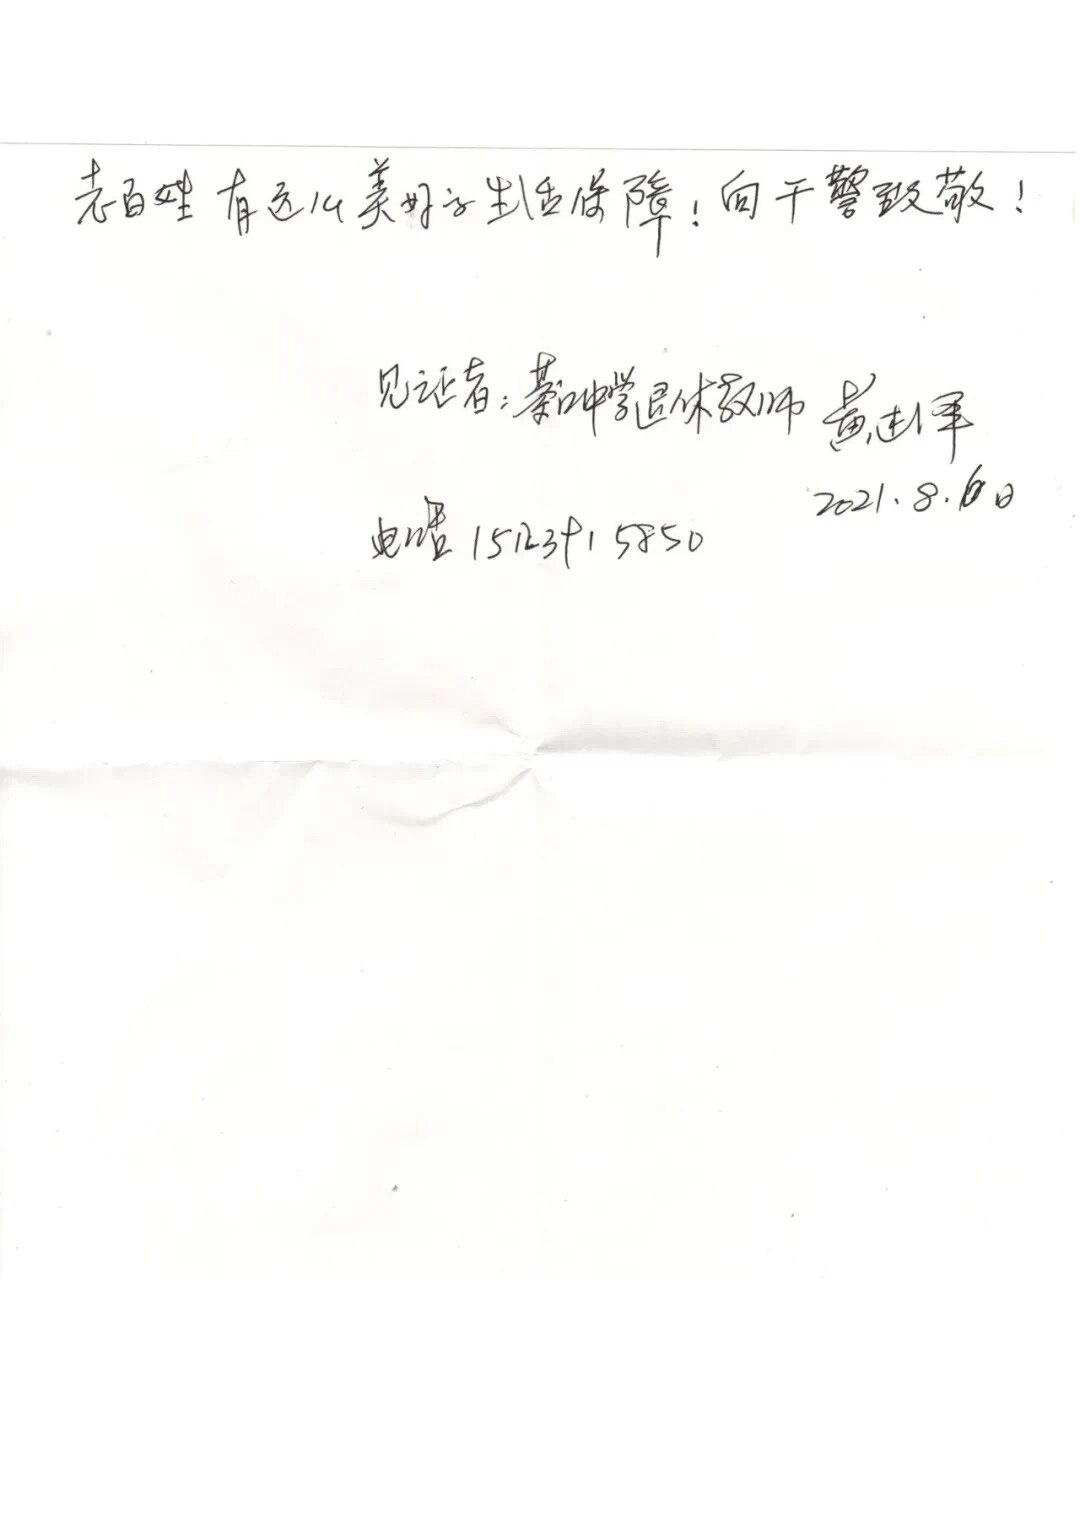 老百姓有这么美好的生活保障！向干警致敬！
见证者：綦江中学退休教师 黄建军
2021.8.6日
电话 15123915850